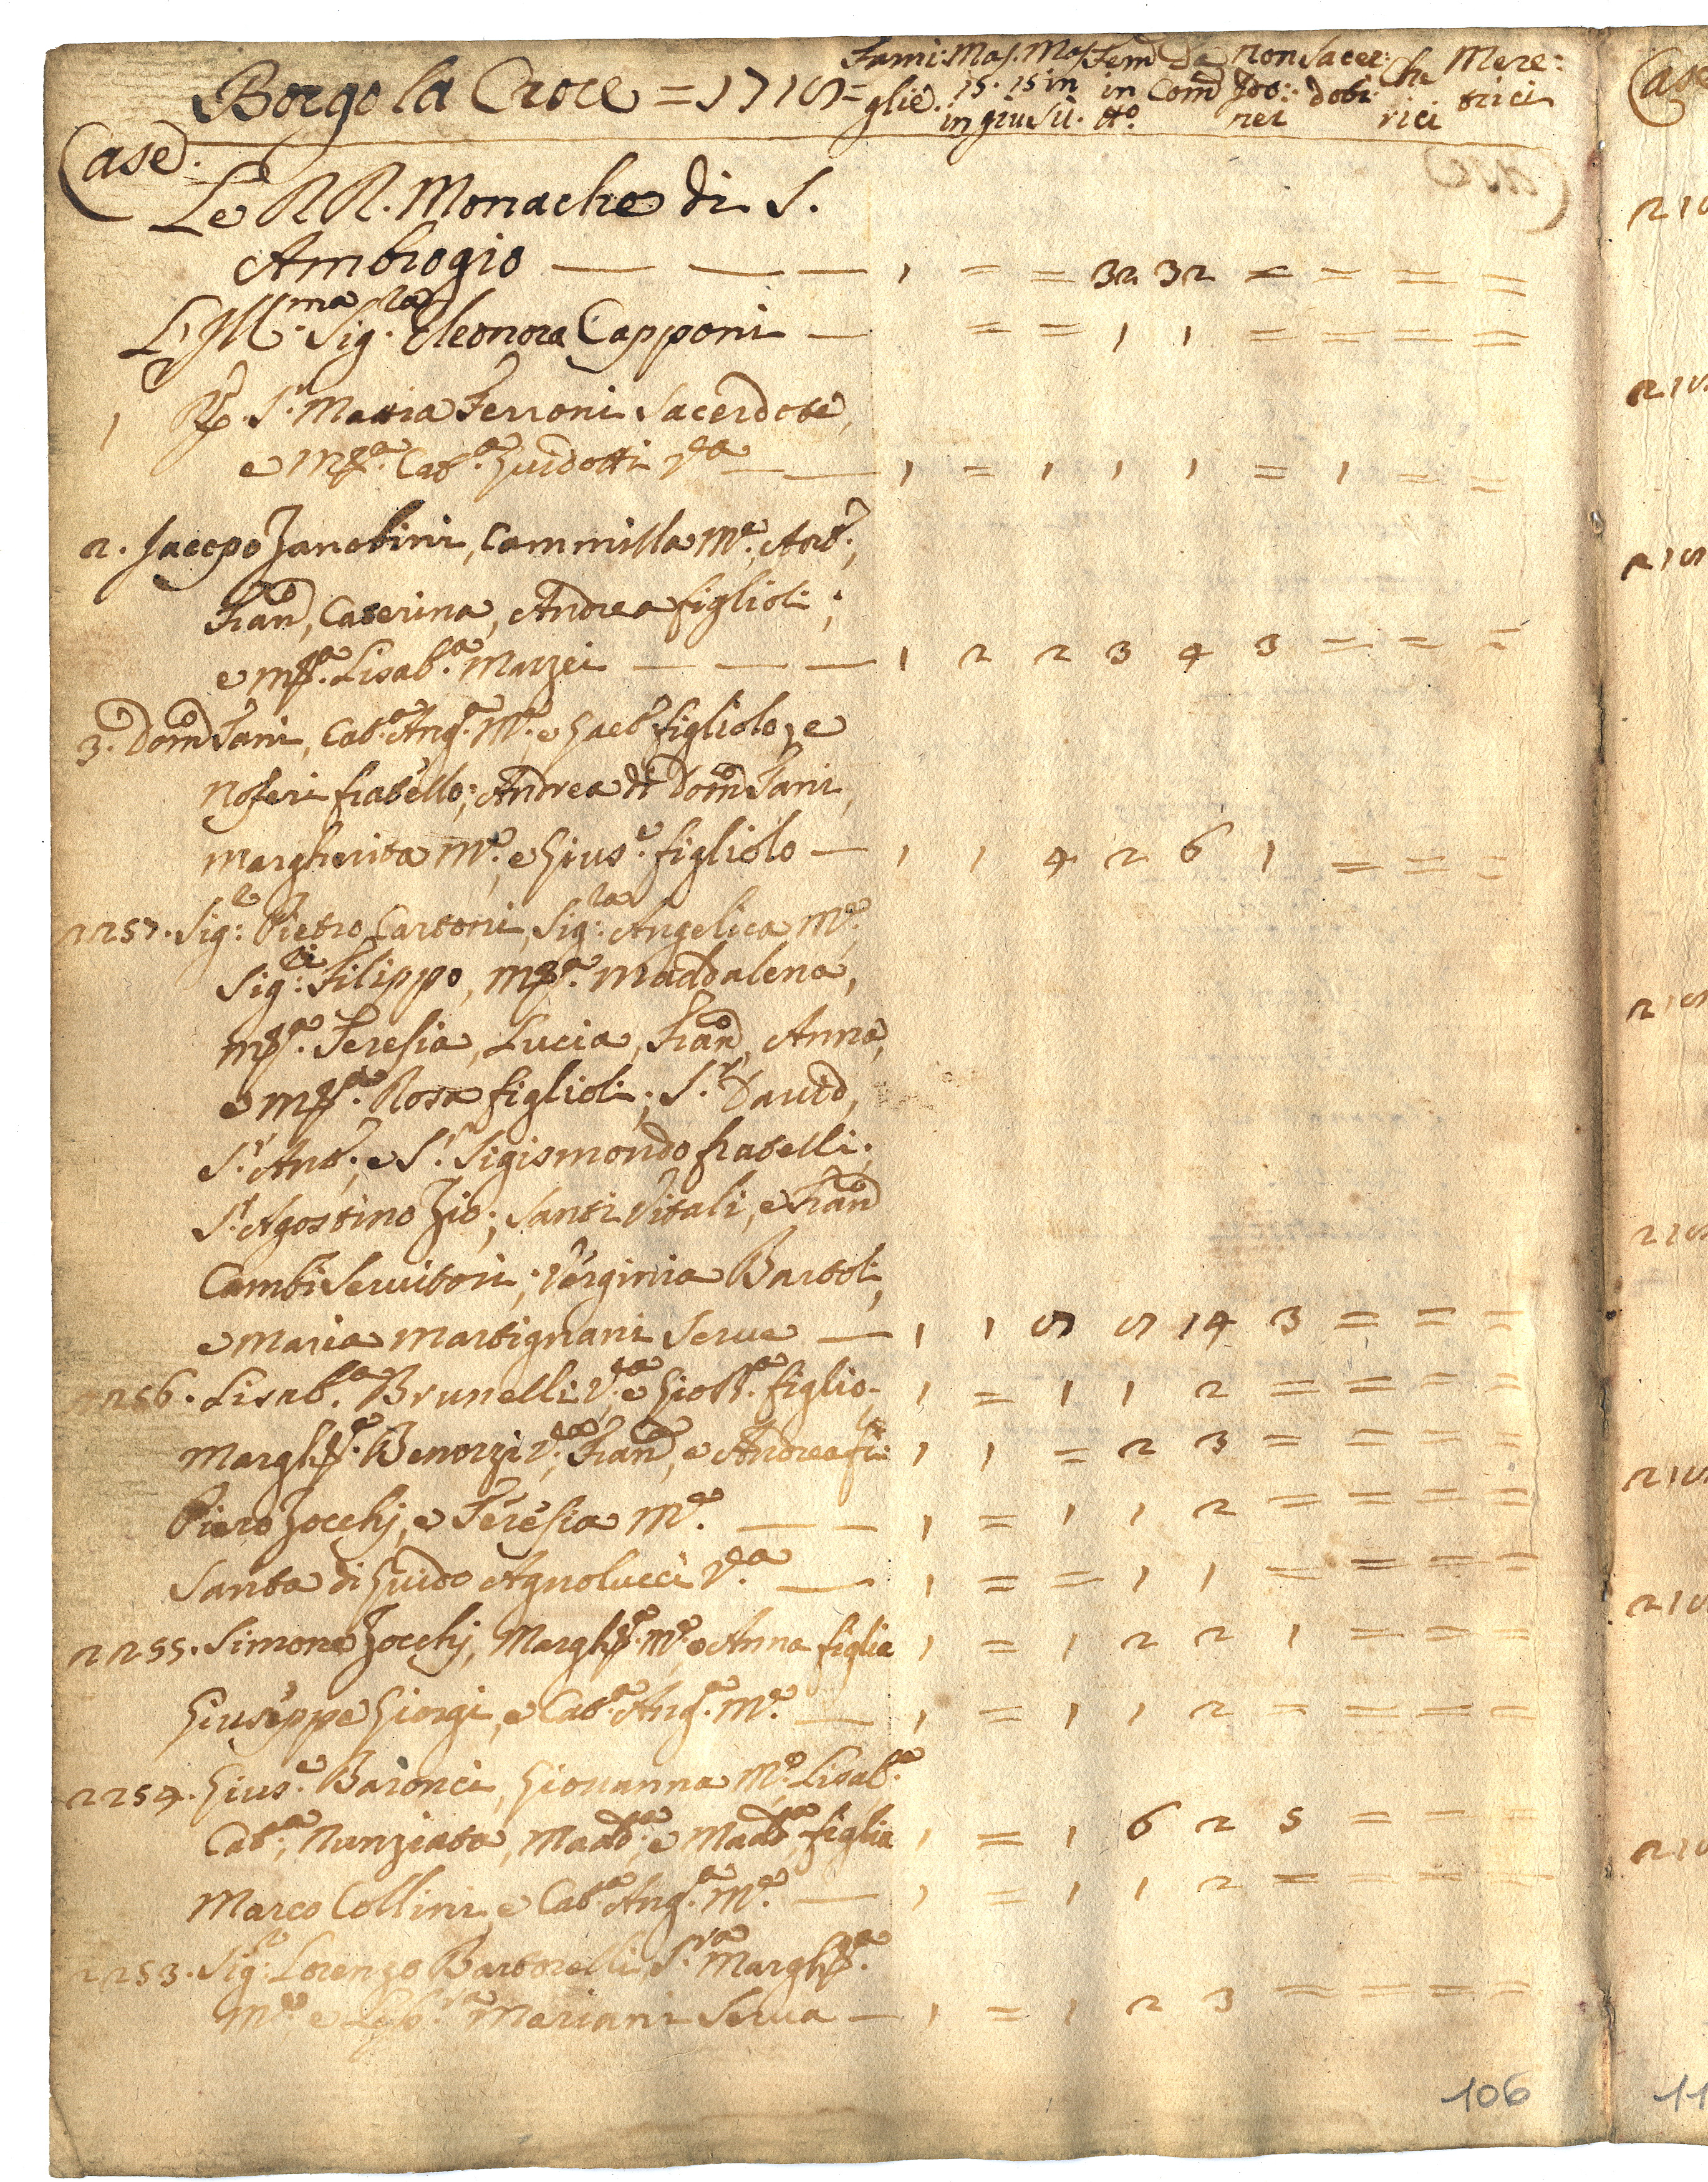 Fami: Mas. Mas. Fem Da Non Sacer: Che Mere:
Borgo la Croce = 1715 = glie. 15. 15 in in Com doti: rici trici
in giu Su. tto. nei
Case.
Le RR. Monache di S.
Ambrogio — — — 1 = = 32 32 = = = =
L'Ill.ma Sig.ra Eleonora Capponi — = = 1 1 = = = =
1 S.r Mattia Ferroni Sacerdote,
e M.a Cat.a Guidotti V.da — — 1 = 1 1 1 = 1 = =
2. Jacopo Zanobini, Cammilla M.e, Ant.o,
Fran.co, Caterina, Andrea figlioli;
e M.a Lisab.a Mazzei — — — 1 2 2 3 4 3 = = =
3. Dom.co Tani, Cat.a Ang.a M.e, e Gaet.o figliolo, e
Noferi fratello; Andrea di Dom.co Tani,
Margherita M.e, e Gius.e figliolo — 1 1 4 2 6 1 = = =
2257. Sig.r Pietro Cartoni, Sig.ra Angelica M.e
Sig.ri Filippo, M.a Maddalena,
M.a Teresia, Lucia, Fran.co, Anna,
e M.a Rosa figlioli; S.r David,
S.r Ant.o, e S.r Sigismondo fratelli;
S.r Agostino Zio; Santi Vitali, e Fran.co
Cambi Servitori; Verginia Bartoli,
e Maria Martignani Serve — 1 1 9 9 14 3 = = =
2256. Lisab.a Brunelli V.da e Gio figlio. 1 = 1 1 2 = = = =
Margh.a Benozzi V.da, Fran.ca, e Andrea fi: 1 1 = 2 3 = = = =
Piero Zocchj, e Teresia M.e — — 1 = 1 1 2 = = = =
Santa di Guido Agnolucci V.da — 1 = = 1 1 = = = =
2255. Simone Zocchj, Margh.a M.e e Anna figlia 1 = 1 2 2 1 = = =
Giuseppe Giorgi, e Cat.a Ang.a M.e — 1 = 1 1 2 = = = =
2254. Gius.e Baronci, Giovanna M.e, Lisab.a
Cat.a, Nunziata, Mad.a, e Mad.a figlie 1 = 1 6 2 5 = = =
Marco Collini, e Cat.a Ang.a M.e — 1 = 1 1 2 = = = =
2253. Sig.r Lorenzo Bartorelli, S.ra Margh.a
M.e, e Mariani Serva — 1 = 1 2 3 = = = =
106